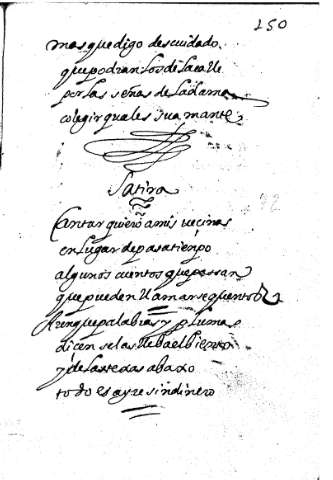 150
mas que digo descuidado
que podran los de la calle
por las señas de la dama
colegir qual es su amante
Satira
Cantar quiero a mis vecinas
en lugar de pasatienpo
algunos cuentos que passan
que pueden llamarse quentos
Aunque palabras y plumas
dicen se las lleba el biento
y de las texas abaxo
todo es ayre sin dinero